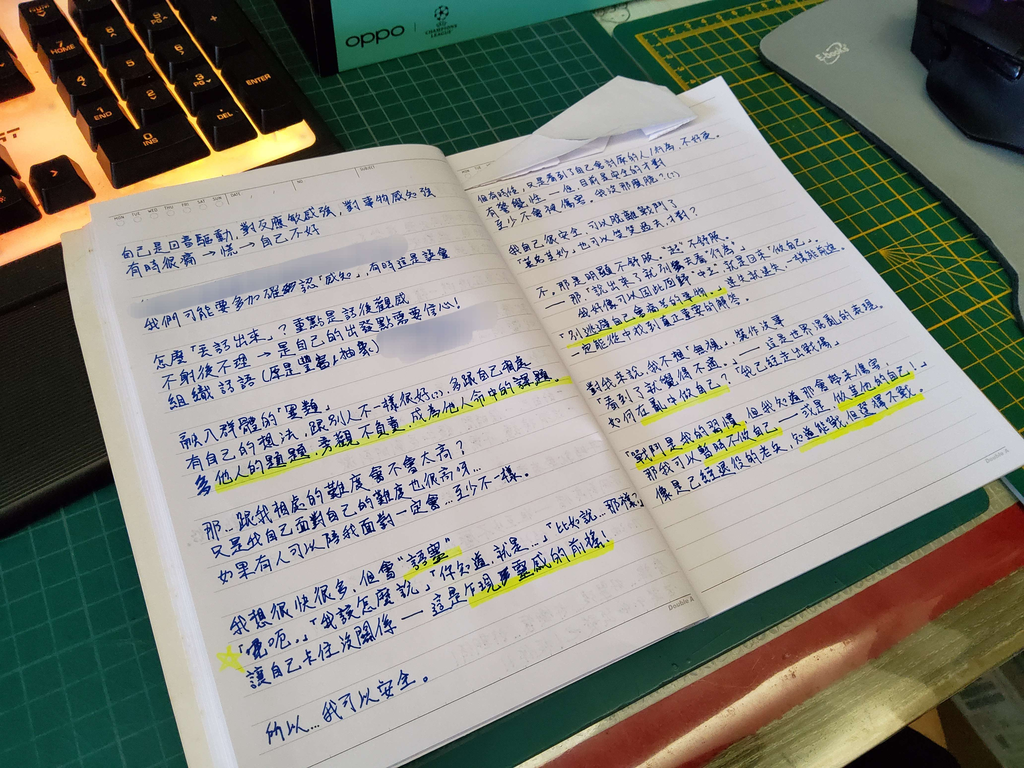 自己是回音驅動，對反應敏感強，對事物感知強
有時很痛 → 慌 → 自己不好
我們可能要多加確認「感知」，有時這是誤會
怎麼「丟話出來」？重點是話後觀感
不躲後不理 → 是自己的出發點需要信心！
組織話語（厚是豐富&抽象）
融入群體的「單麵」
有自己的想法，跟別人不一樣很好(?)，多跟自己相處
多他人的題題，旁觀、不負責，成為他人命中的課題。
那...跟我相處的難度會不會太高？
又是我自己面對自己的難度也很高呀...
如果有人可以陪我面對一定會...至少不一樣。
我想很快很多，但會“語塞”
「嗯呃..」「我該怎麼說」「你知道，就是...」「比如說...那樣」
讓自己卡住沒關係 —— 這是乍現靈感的前搖！
所以...我可以安全。
Double A
但有時候，又是看到了自己會討厭的人/行為，不好受。
有雙雙性 —— 但，目前是安全的，不對
至少不會被傷害，我沒那麼脆？(?)
我自己很安全，可以脫離戰鬥了
「莫名其妙」也可以笑笑過去，才對？
不，那是明顯不舒服。「說」不舒服
—— 那「說出來了就別累至看得高」
我好像可以因此回歸"吐"，就是回來「做自己」。
「別逃避自己會痛苦的事物。」迷失就迷失，一樣能前進。
一定能從中找到真正重要的解答。
對我來說，我不想「無傷」，裝作沒事
「看到了就覺得不適。」 —— 這是世界混亂的表現。
如何在亂中做自己？「我已經走出戰場」
「戰鬥是我的習慣，但我知道那會帶來傷害，
那我可以暫時不做自己 —— 或是「做其他的自己！」
像是已經退役的老兵，知道能戰，但選擇不戰。
Double A
oppo
UEFA
CHAMPIONS
LEAGUE
7
HOME
4
5
6
1
END
2
3
PG
0
INS
DEL
ENTER
+